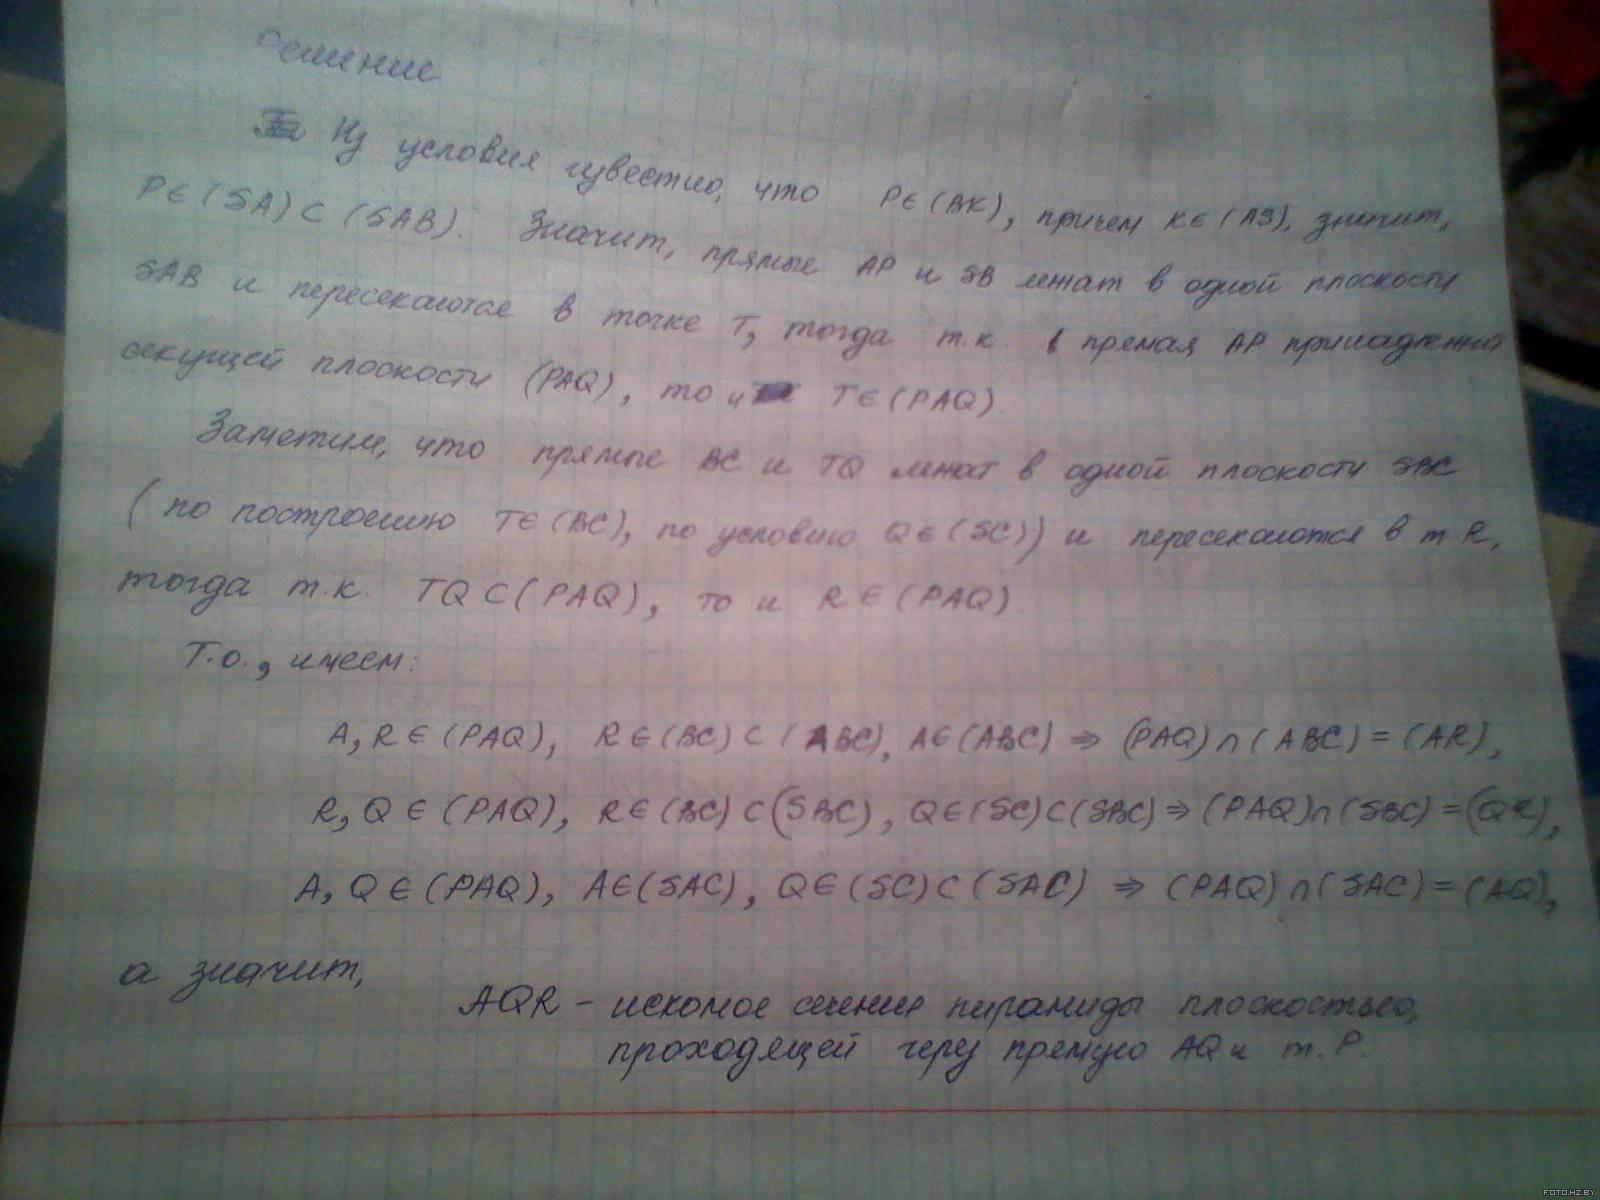 Решение
Из условия известно, что P∈(BK), причем K∈(AS), значит,
P∈(SA)⊂(SAB). Значит, прямые AP и SB лежат в одной плоскости
SAB и пересекаются в точке T, тогда т.к. прямая AP принадлежит
секущей плоскости (PAQ), то и T∈(PAQ).
Заметим, что прямые BC и TQ лежат в одной плоскости SBC
(по построению T∈(BC), по условию Q∈(SC)) и пересекаются в т R,
тогда т.к. TQ⊂(PAQ), то и R∈(PAQ).
Т.о., имеем:
A,R∈(PAQ), R∈(BC)⊂(ABC), A∈(ABC) ⇒ (PAQ)∩(ABC)=(AR),
R,Q∈(PAQ), R∈(BC)⊂(SBC), Q∈(SC)⊂(SBC) ⇒ (PAQ)∩(SBC)=(QR),
A,Q∈(PAQ), A∈(SAC), Q∈(SC)⊂(SAC) ⇒ (PAQ)∩(SAC)=(AQ),
а значит,
AQR – искомое сечение пирамиды плоскостью,
проходящей через прямую AQ и т. P.
FOTO.HZ.BY